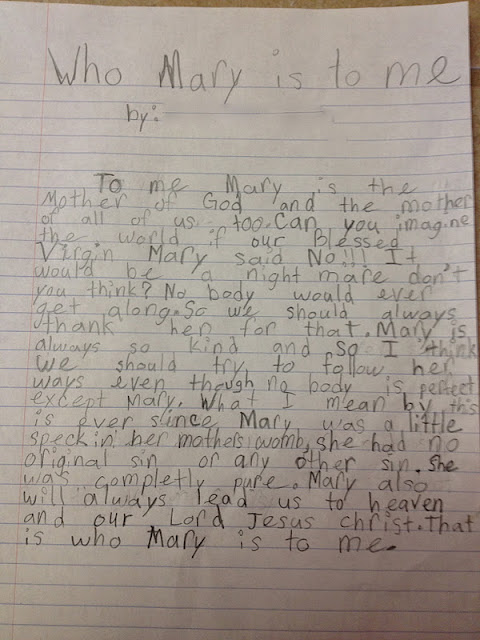 Who Mary is to me
by:
To me Mary is the
Mother of God and the mother
of all of us too. Can you imagine
the world if our Blessed
Virgin Mary said No!!! It
would be a night mare don't
you think? No body would ever
get along. So we should always
thank her for that. Mary is
always so kind and so I think
we should try to follow her
ways even though no body is perfect
except Mary. What I mean by this
is ever since Mary was a little
speck in her mothers womb, she had no
original sin or any other sin. She
was completly pure. Mary also
will always lead us to heaven
and our Lord Jesus christ. That
is who Mary is to me.